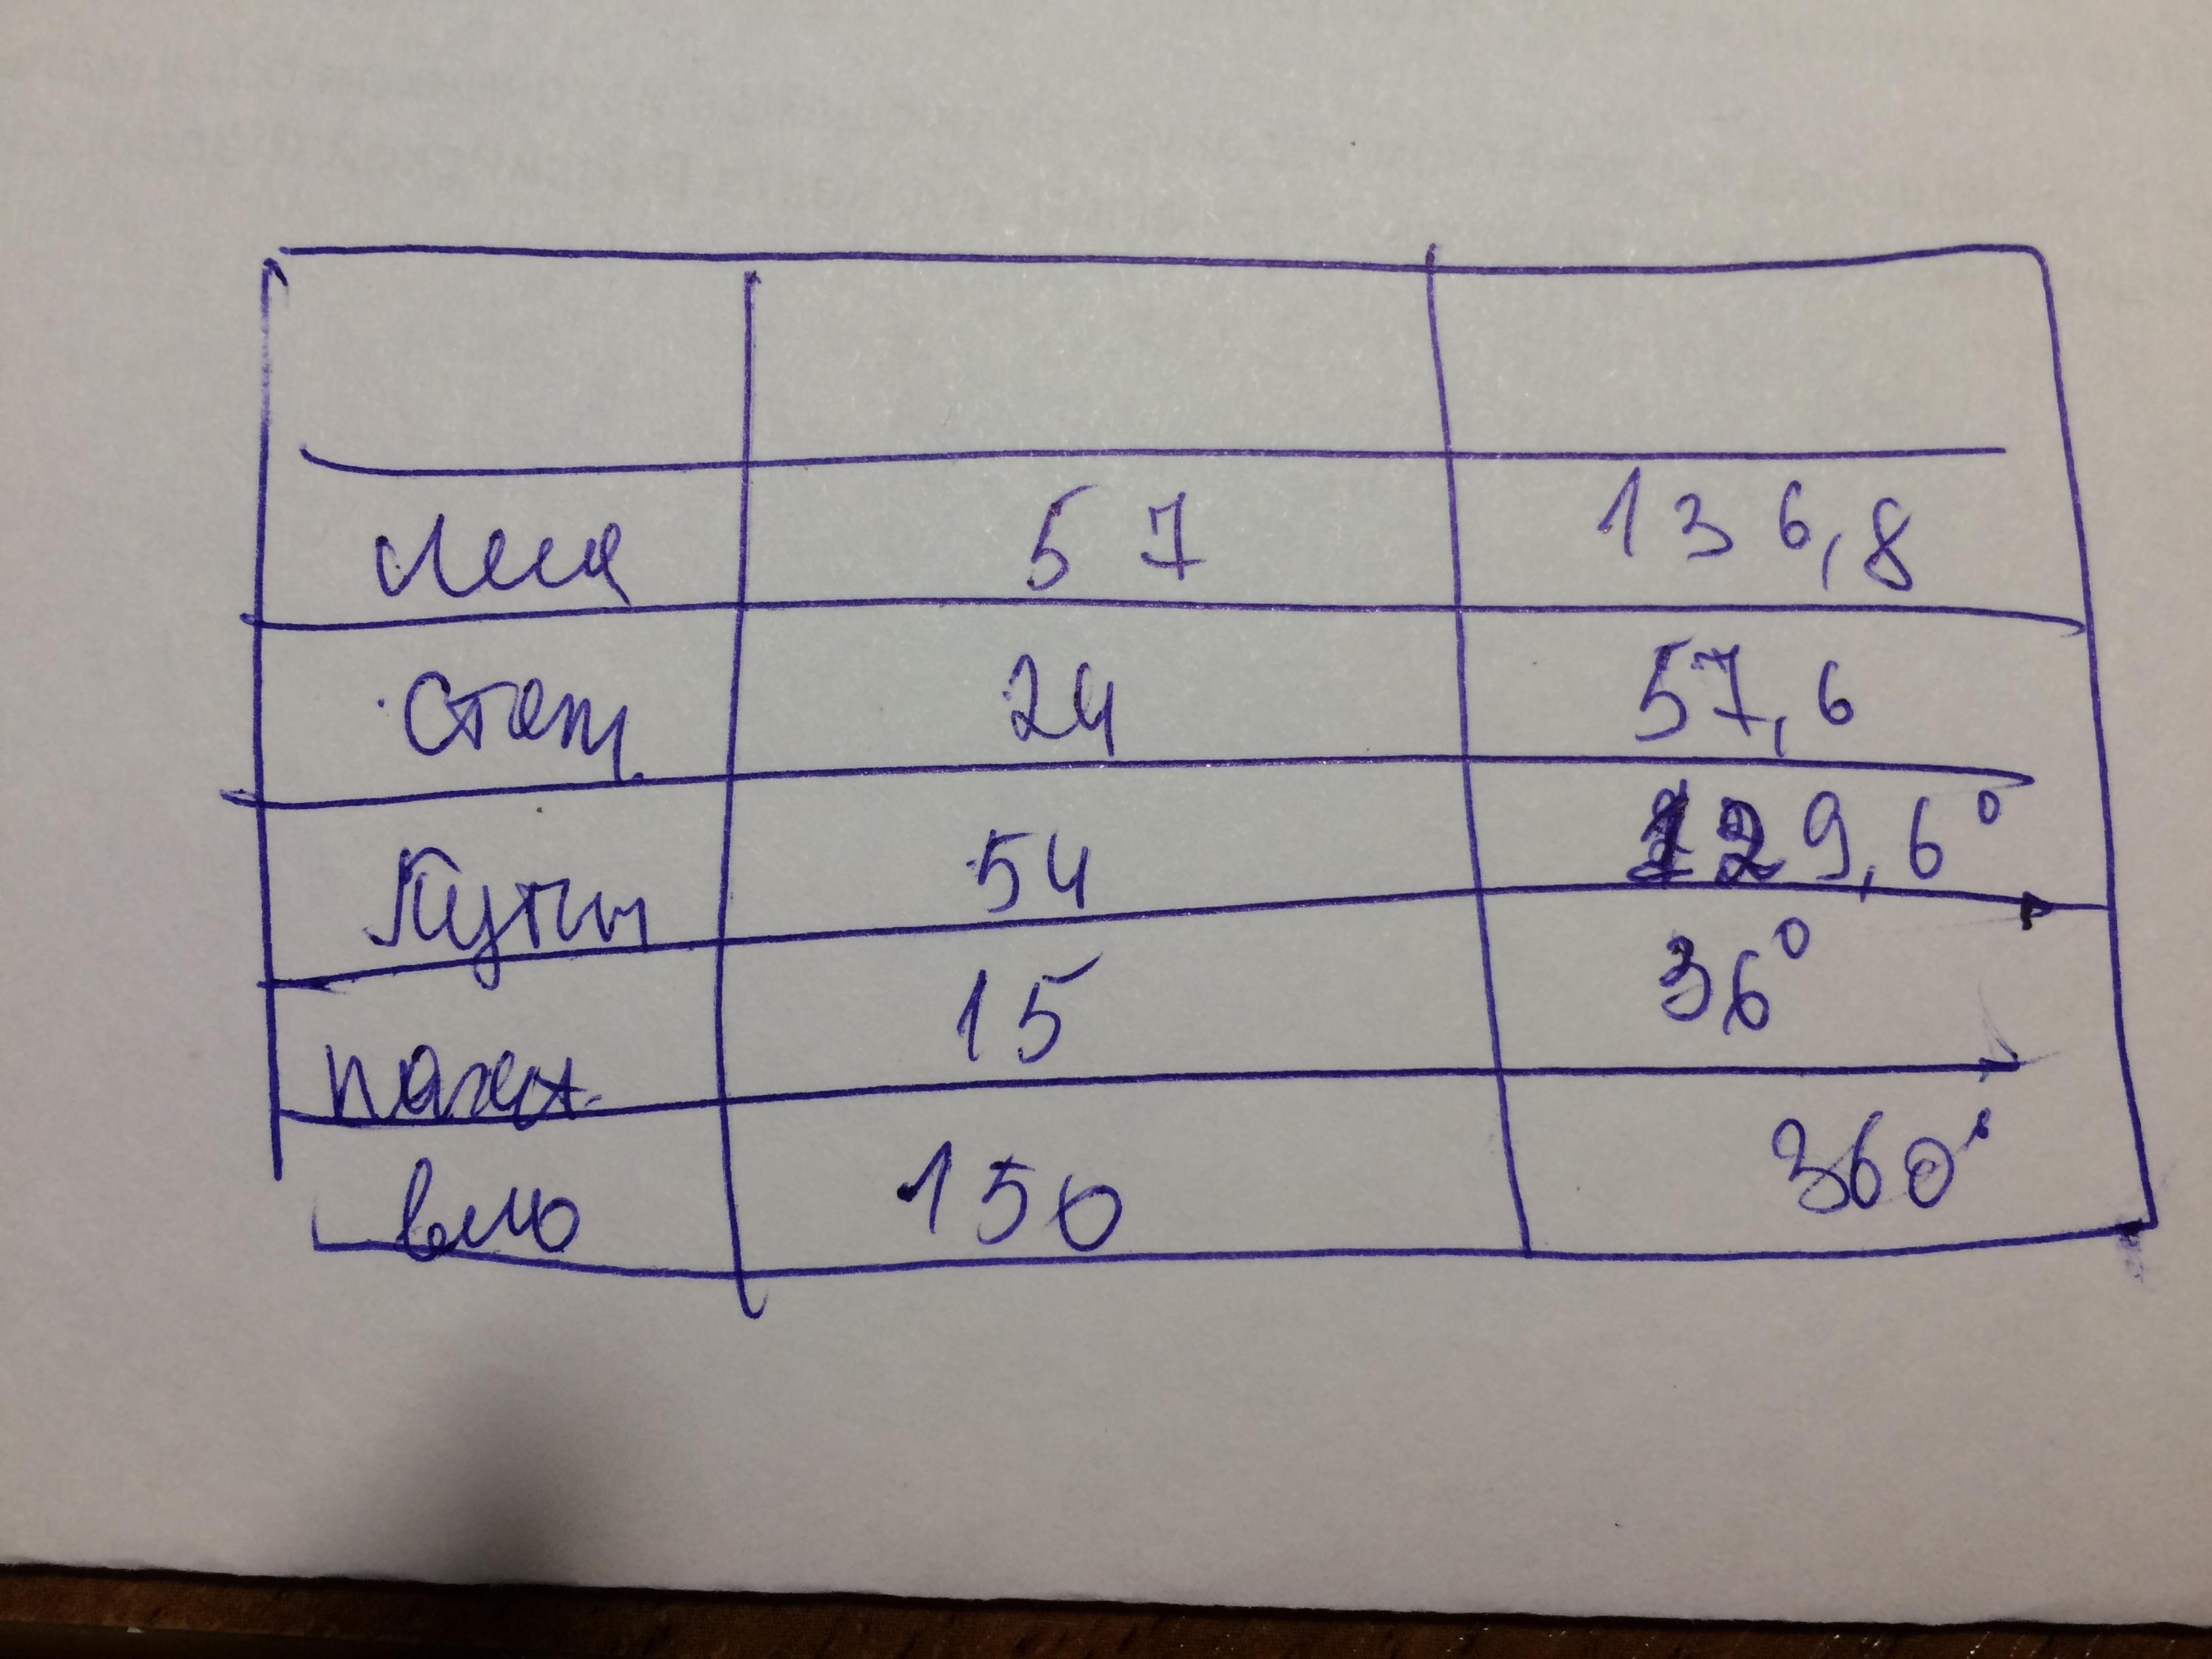 Леса 57 136,8
Степи 24 57,6
Кусты 54 129,6°
пахот. 15 36°
всю 150 360°